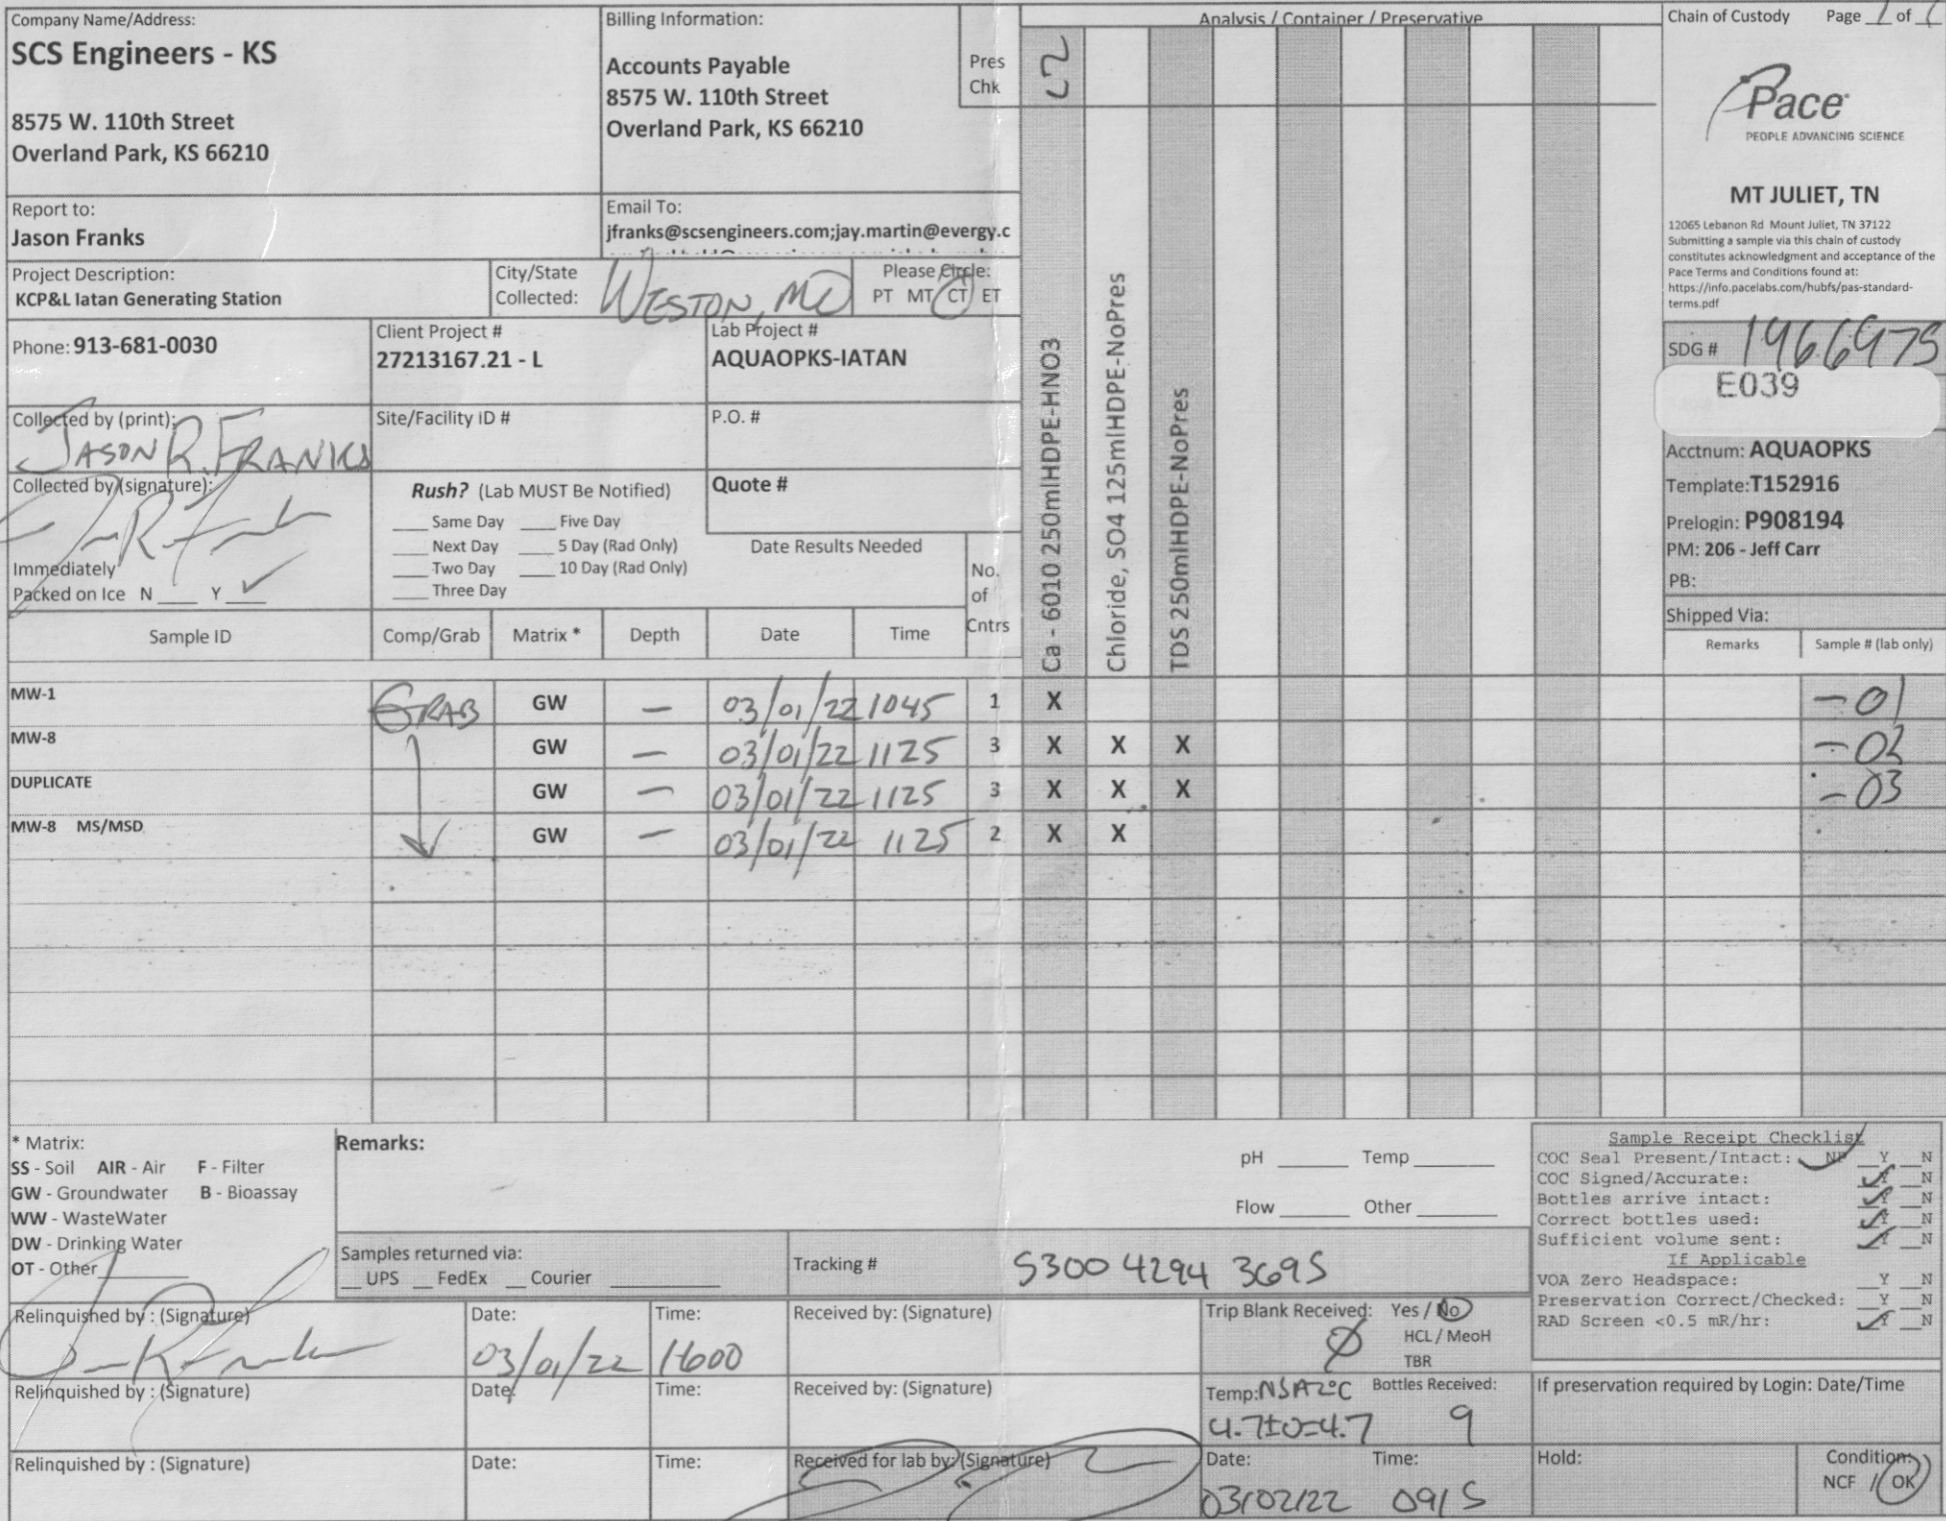 Company Name/Address:
SCS Engineers - KS
8575 W. 110th Street
Overland Park, KS 66210
Billing Information:
Accounts Payable
8575 W. 110th Street
Overland Park, KS 66210
Pres
Chk
Analysis / Container / Preservative
Chain of Custody Page 1 of
Pace
PEOPLE ADVANCING SCIENCE
MT JULIET, TN
12065 Lebanon Rd Mount Juliet, TN 37122
Submitting a sample via this chain of custody
constitutes acknowledgment and acceptance of the
Pace Terms and Conditions found at:
https://info.pacelabs.com/hubfs/pas-standard-
terms.pdf
Report to:
Jason Franks
Email To:
jfranks@scsengineers.com;jay.martin@evergy.c
Project Description:
KCP&L Iatan Generating Station
City/State
Collected: WESTON, MO
Please Circle:
PT MT CT ET
Phone: 913-681-0030
Client Project #
27213167.21 - L
Lab Project #
AQUAOPKS-IATAN
Collected by (print):
JASON R. FRANKS
Site/Facility ID #
P.O. #
Collected by (signature):
Rush? (Lab MUST Be Notified)
Same Day Five Day
Next Day 5 Day (Rad Only)
Two Day 10 Day (Rad Only)
Three Day
Quote #
Date Results Needed
Immediately
Packed on Ice N Y ✓
No.
of
Cntrs
Ca - 6010 250mlHDPE-HNO3
Chloride, SO4 125mlHDPE-NoPres
TDS 250mlHDPE-NoPres
SDG #
E039
Acctnum: AQUAOPKS
Template: T152916
Prelogin: P908194
PM: 206 - Jeff Carr
PB:
Shipped Via:
Sample ID Comp/Grab Matrix * Depth Date Time Remarks Sample # (lab only)
MW-1 GRAB GW — 03/01/22 1045 1 X -01
MW-8 GW — 03/01/22 1125 3 X X X -02
DUPLICATE GW — 03/01/22 1125 3 X X X -03
MW-8 MS/MSD GW — 03/01/22 1125 2 X X
* Matrix:
SS - Soil AIR - Air F - Filter
GW - Groundwater B - Bioassay
WW - WasteWater
DW - Drinking Water
OT - Other
Remarks:
pH Temp
Flow Other
Samples returned via:
UPS FedEx Courier
Tracking # 5300 4294 3695
Sample Receipt Checklist
COC Seal Present/Intact: ✓ NP Y N
COC Signed/Accurate: ✓ Y N
Bottles arrive intact: ✓ Y N
Correct bottles used: ✓ Y N
Sufficient volume sent: ✓ Y N
If Applicable
VOA Zero Headspace: Y N
Preservation Correct/Checked: Y N
RAD Screen <0.5 mR/hr: ✓ Y N
Relinquished by : (Signature)
Date:
03/01/22
Time:
1600
Received by: (Signature)
Trip Blank Received: Yes / No
HCL / MeoH
TBR
Relinquished by : (Signature)
Date:
Time:
Received by: (Signature)
Temp: NSA2°C Bottles Received:
4.7±0=4.7 9
If preservation required by Login: Date/Time
Relinquished by : (Signature)
Date:
Time:
Received for lab by: (Signature)
Date:
03/02/22
Time:
0915
Hold:
Condition:
NCF / OK